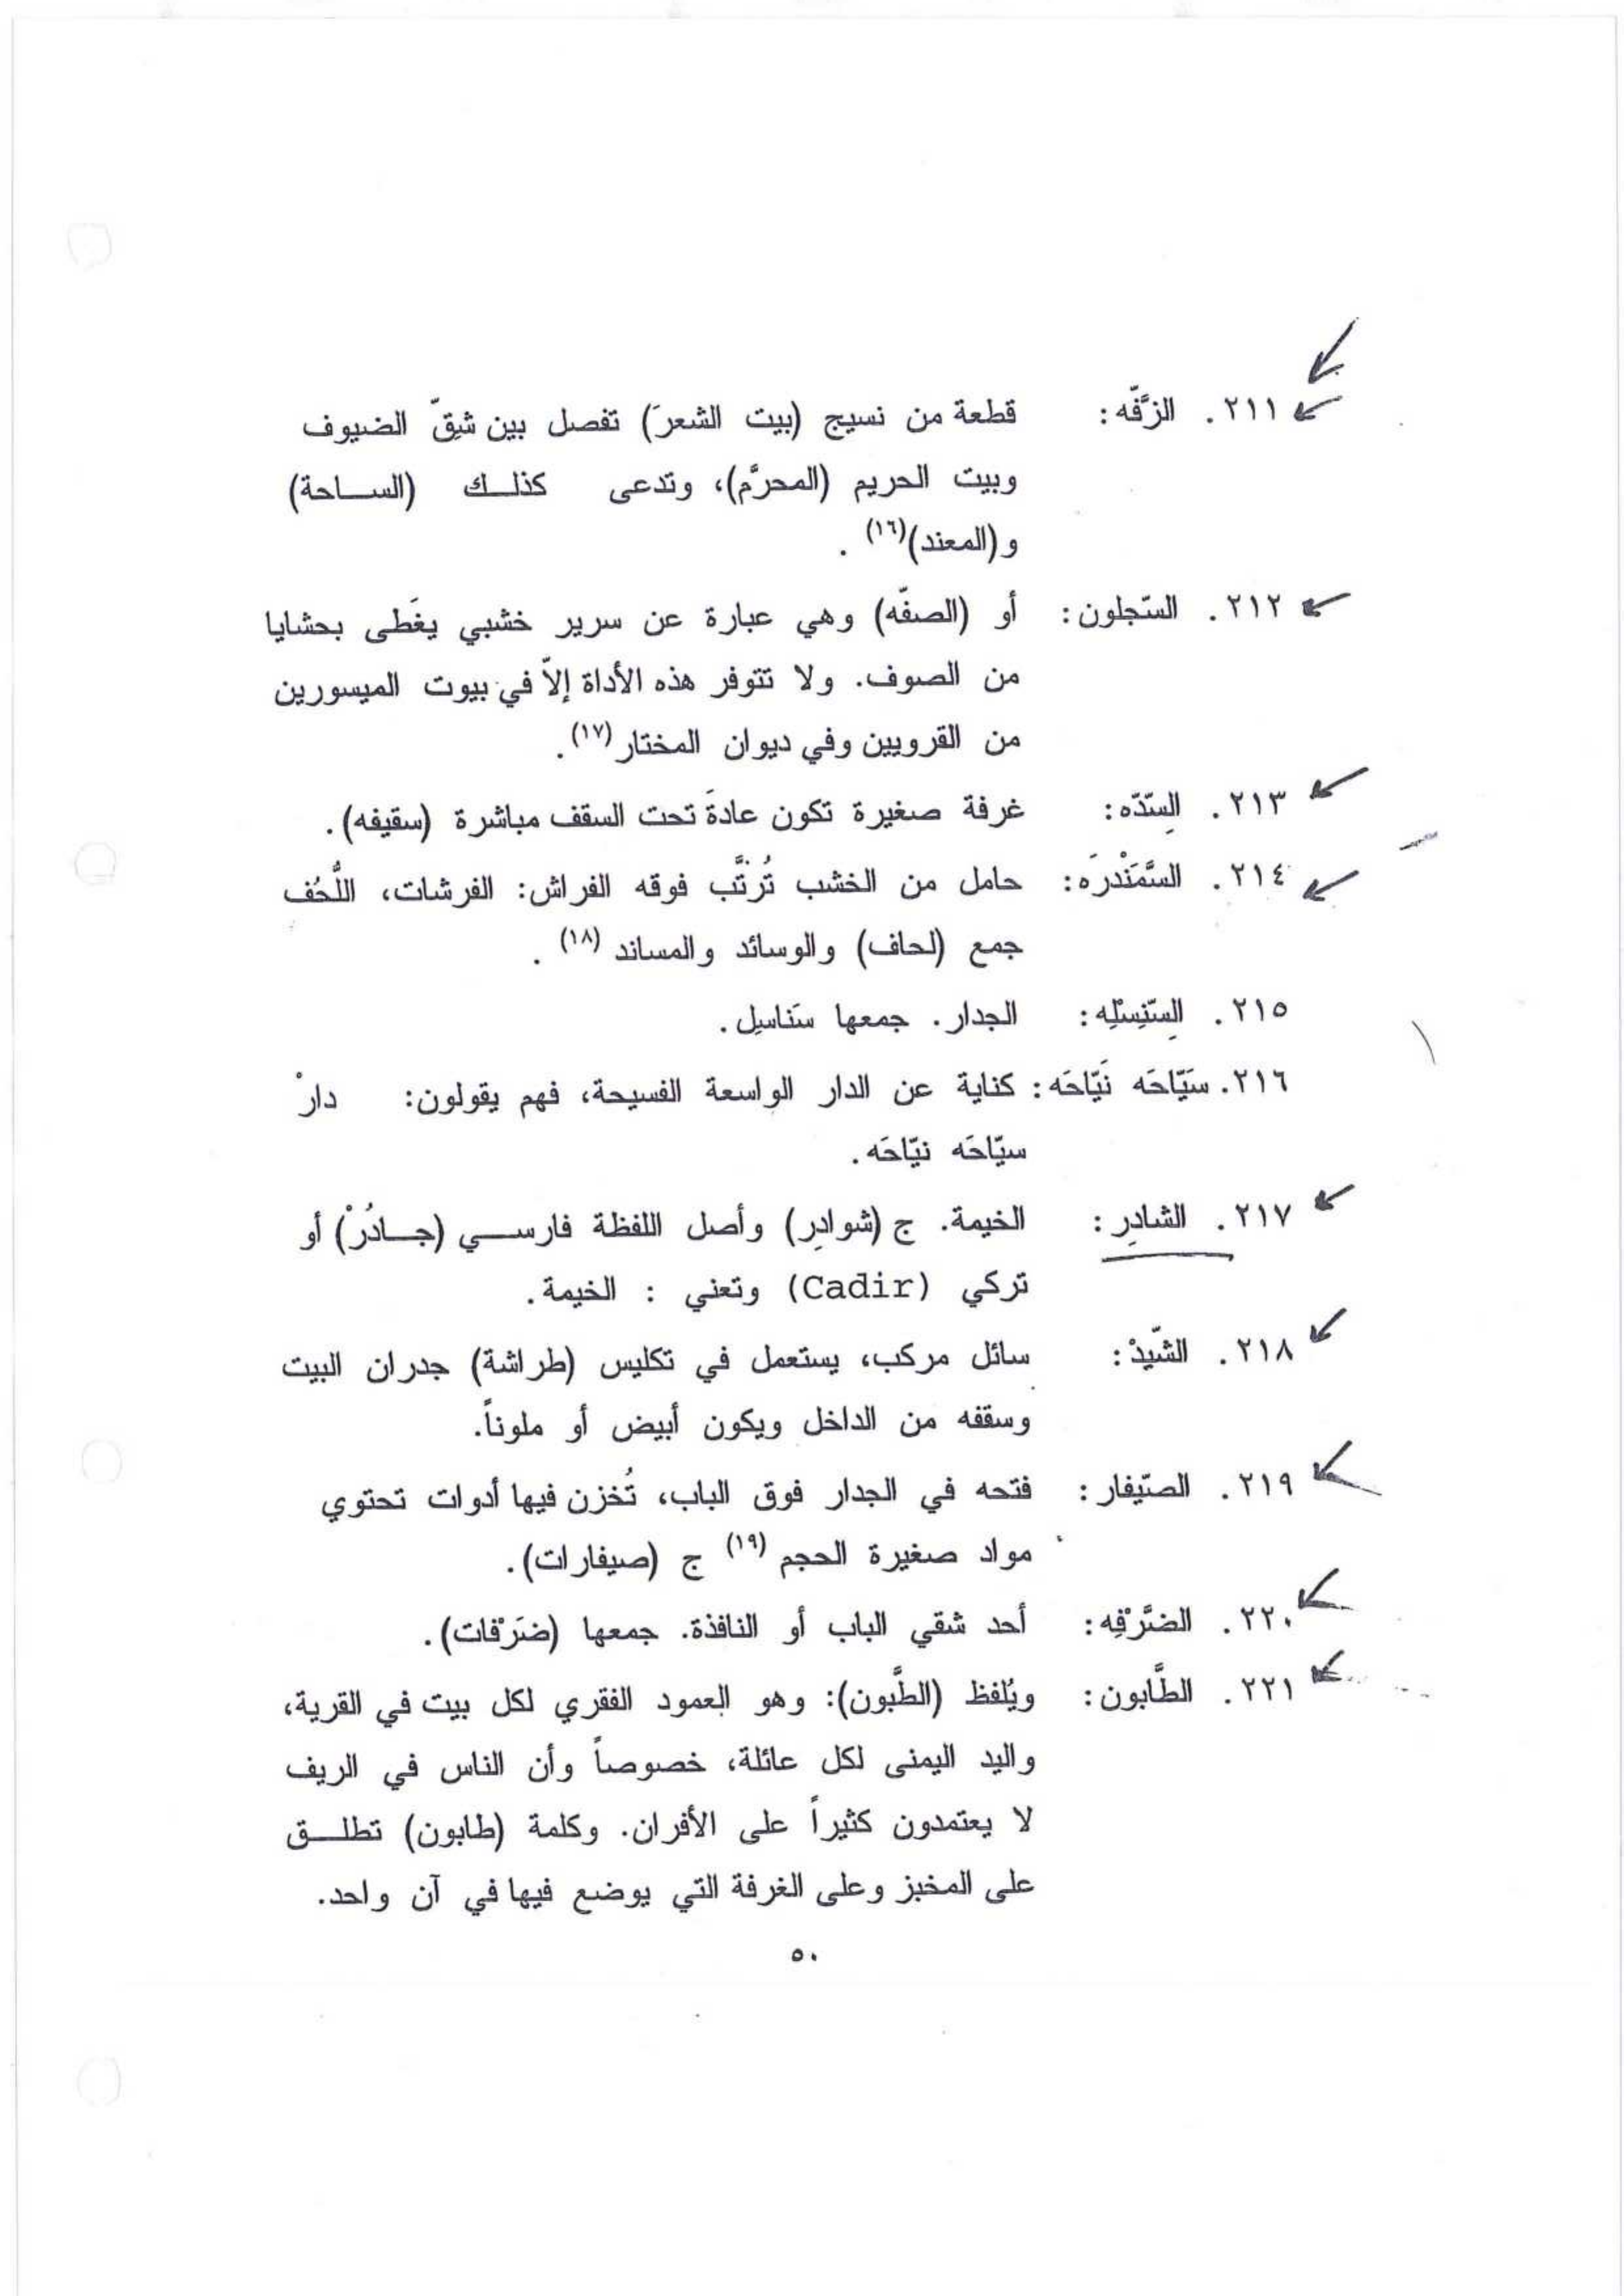 ٢١١. الزَّفّه: قطعة من نسيج (بيت الشعرَ) تفصل بين شِقّ الضيوف
وبيت الحريم (المحرَّم)، وتدعى كذلك (الساحة)
و(المعند)(١٦) .
٢١٢. السّجلون: أو (الصفّه) وهي عبارة عن سرير خشبي يغَطى بحشايا
من الصوف. ولا تتوفر هذه الأداة إلاّ في بيوت الميسورين
من القرويين وفي ديوان المختار (١٧).
٢١٣. السِّدّه: غرفة صغيرة تكون عادةَ تحت السقف مباشرة (سقيفه).
٢١٤. السَّمَنْدرَه: حامل من الخشب تُرتَّب فوقه الفراش: الفرشات، اللُّحُف
جمع (لحاف) والوسائد والمساند (١٨) .
٢١٥. السِّنِسْلِه: الجدار. جمعها سَناسِل.
٢١٦. سَيّاحَه نَيّاحَه: كناية عن الدار الواسعة الفسيحة، فهم يقولون: دارْ
سيّاحَه نيّاحَه.
٢١٧. الشادِر: الخيمة. ج (شوادِر) وأصل اللفظة فارسي (جادُرْ) أو
تركي (Cadir) وتعني : الخيمة.
٢١٨. الشّيدْ: سائل مركب، يستعمل في تكليس (طراشة) جدران البيت
وسقفه من الداخل ويكون أبيض أو ملوناً.
٢١٩. الصّيفار: فتحه في الجدار فوق الباب، تُخزن فيها أدوات تحتوي
مواد صغيرة الحجم (١٩) ج (صيفارات).
٢٢٠. الضَّرْفِه: أحد شقي الباب أو النافذة. جمعها (ضَرْفات).
٢٢١. الطَّابون: ويُلفظ (الطَّبون): وهو العمود الفقري لكل بيت في القرية،
واليد اليمنى لكل عائلة، خصوصاً وأن الناس في الريف
لا يعتمدون كثيراً على الأفران. وكلمة (طابون) تطلق
على المخبز وعلى الغرفة التي يوضع فيها في آن واحد.
٥٠